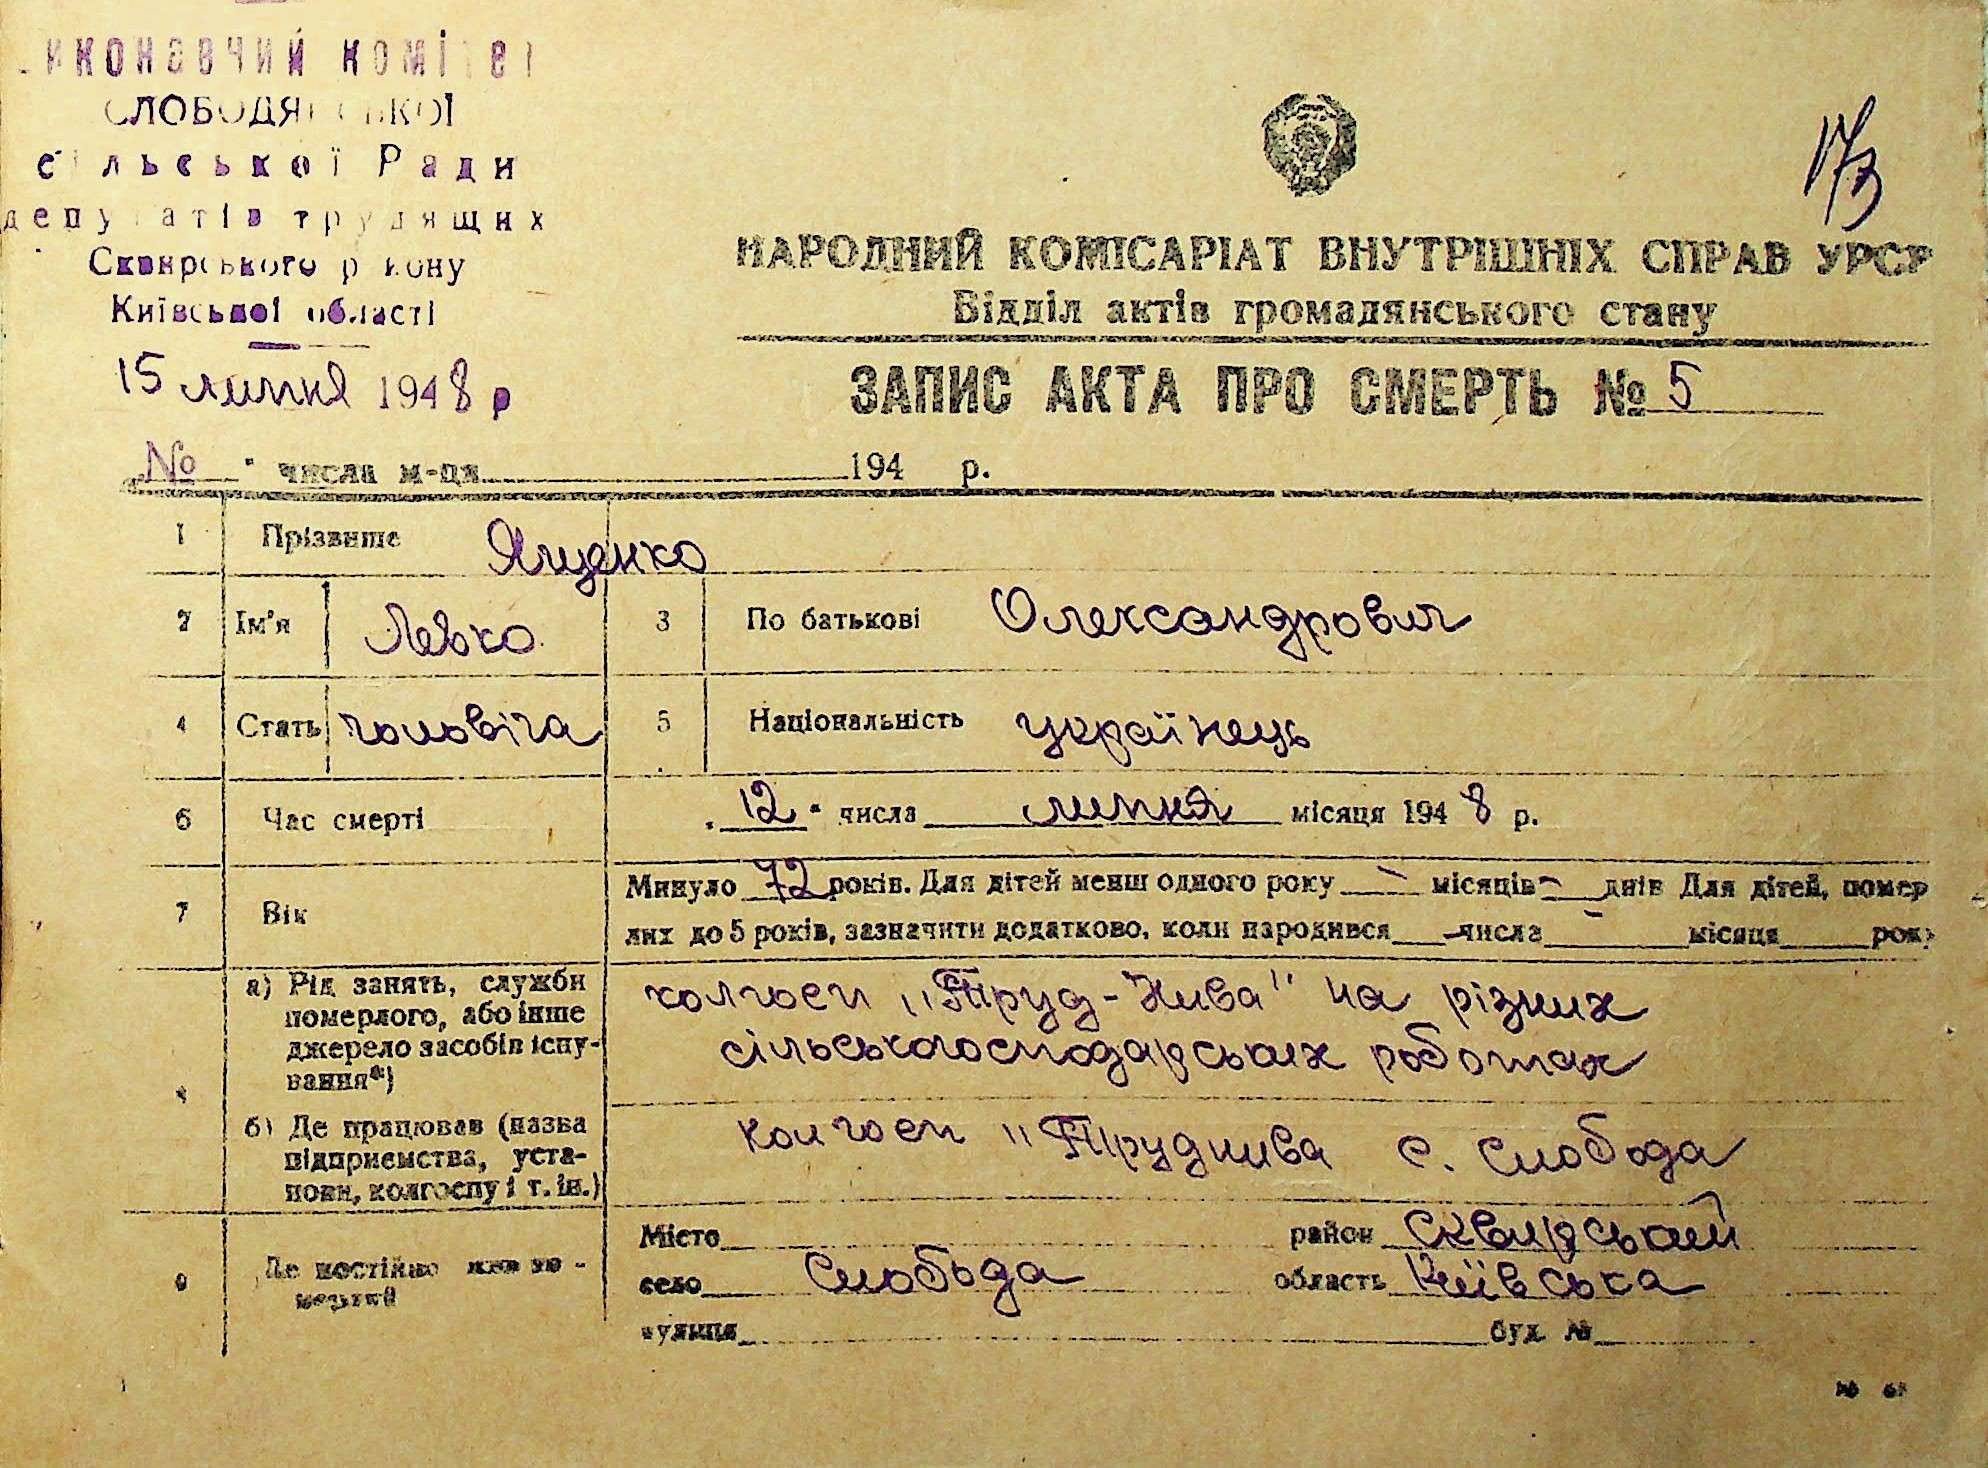 иконавчий комітет
СЛОБОДЯНСЬКОЇ
сільської Ради
депутатів трудящих
Сквирського району
Київської області
15 липня 1948 р
17/3
НАРОДНИЙ КОМІСАРІАТ ВНУТРІШНІХ СПРАВ УРСР
Відділ актів громадянського стану
ЗАПИС АКТА ПРО СМЕРТЬ № 5
№ " числа м-ця 194 р.
1 Прізвище Яценко
2 Ім'я Левко 3 По батькові Олександрович
4 Стать чоловіча 5 Національність українець
6 Час смерті "12" числа липня місяця 1948 р.
7 Вік Минуло 72 років. Для дітей менш одного року - місяців - днів Для дітей, помер
лих до 5 років, зазначити додатково, коли народився - числа - місяця року
8 а) Рід занять, служби
померлого, або інше
джерело засобів існу-
вання*)
колгосп "Труд-Нива" на різних
сільськогосподарських роботах
б) Де працював (назва
підприємства, уста-
нови, колгоспу і т. ін.)
колгосп "Труднива с. Слобода
9 Де постійно жив по-
мерлий
Місто район Сквирський
село Слобода область Київська
вулиця буд. №